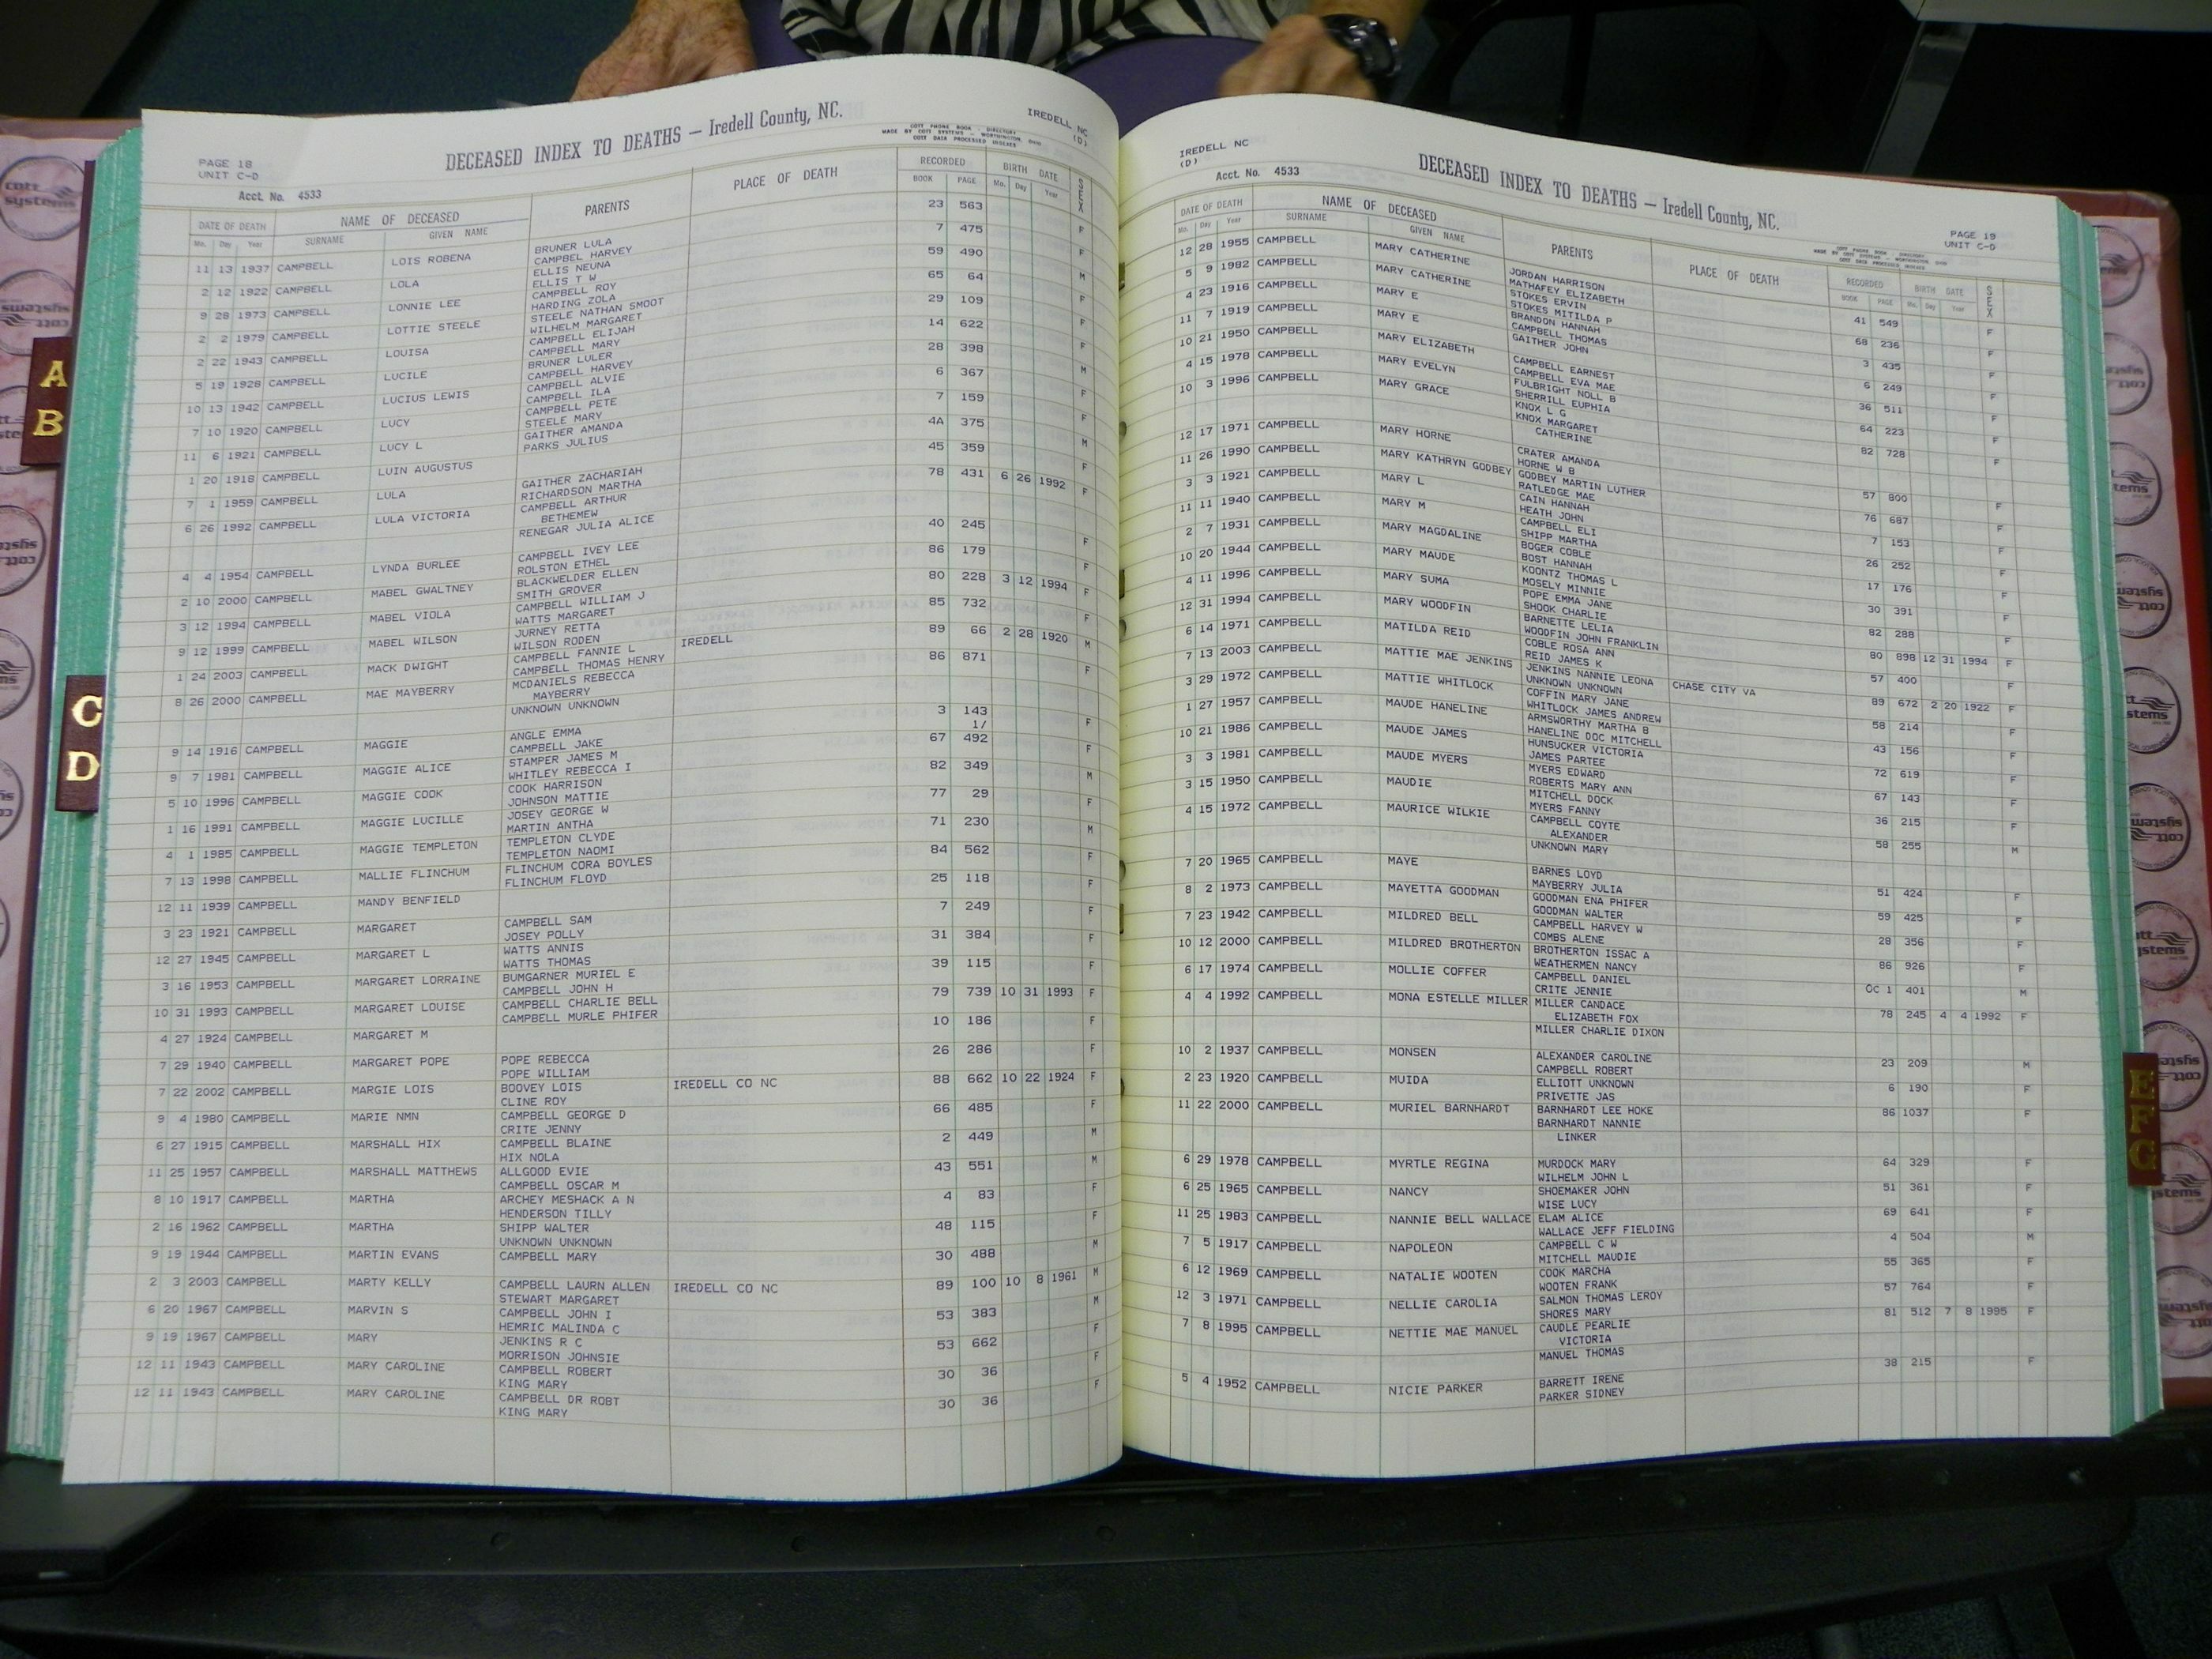 PAGE 18
UNIT C-D
Acct. No. 4533
DECEASED INDEX TO DEATHS — Iredell County, NC.
COTT PHONE BOOK - DIRECTORY
MADE BY COTT SYSTEMS - WORTHINGTON OHIO
COTT DATA PROCESSED INDEXES
IREDELL NC
(D)
DATE OF DEATH NAME OF DECEASED PARENTS PLACE OF DEATH RECORDED BIRTH DATE SEX
Mo. Day Year SURNAME GIVEN NAME BOOK PAGE Mo. Day Year
11 13 1937 CAMPBELL LOIS ROBENA BRUNER LULA 23 563 F
CAMPBEL HARVEY
2 12 1922 CAMPBELL LOLA ELLIS NEUNA 7 475 F
ELLIS T W
9 28 1973 CAMPBELL LONNIE LEE CAMPBELL ROY 59 490 M
HARDING ZOLA
2 2 1979 CAMPBELL LOTTIE STEELE STEELE NATHAN SMOOT 65 64 F
WILHELM MARGARET
2 22 1943 CAMPBELL LOUISA CAMPBELL ELIJAH 29 109 F
CAMPBELL MARY
5 19 1928 CAMPBELL LUCILE BRUNER LULER 14 622 F
CAMPBELL HARVEY
10 13 1942 CAMPBELL LUCIUS LEWIS CAMPBELL ALVIE 28 398 M
CAMPBELL ILA
7 10 1920 CAMPBELL LUCY CAMPBELL PETE 6 367 F
STEELE MARY
11 6 1921 CAMPBELL LUCY L GAITHER AMANDA 7 159 F
PARKS JULIUS
1 20 1918 CAMPBELL LUIN AUGUSTUS 4A 375 M
7 1 1959 CAMPBELL LULA GAITHER ZACHARIAH 45 359 F
RICHARDSON MARTHA
6 26 1992 CAMPBELL LULA VICTORIA CAMPBELL ARTHUR 78 431 6 26 1992 F
BETHEMEW
RENEGAR JULIA ALICE
4 4 1954 CAMPBELL LYNDA BURLEE CAMPBELL IVEY LEE 40 245 F
ROLSTON ETHEL
2 10 2000 CAMPBELL MABEL GWALTNEY BLACKWELDER ELLEN 86 179 F
SMITH GROVER
3 12 1994 CAMPBELL MABEL VIOLA CAMPBELL WILLIAM J 80 228 3 12 1994 F
WATTS MARGARET
9 12 1999 CAMPBELL MABEL WILSON JURNEY RETTA 85 732 F
WILSON RODEN
1 24 2003 CAMPBELL MACK DWIGHT CAMPBELL FANNIE L IREDELL 89 66 2 28 1920 M
CAMPBELL THOMAS HENRY
8 26 2000 CAMPBELL MAE MAYBERRY MCDANIELS REBECCA 86 871 F
MAYBERRY
UNKNOWN UNKNOWN
9 14 1916 CAMPBELL MAGGIE ANGLE EMMA 3 143 F
CAMPBELL JAKE 1/
9 7 1981 CAMPBELL MAGGIE ALICE STAMPER JAMES M 67 492 F
WHITLEY REBECCA I
5 10 1996 CAMPBELL MAGGIE COOK COOK HARRISON 82 349 M
JOHNSON MATTIE
1 16 1991 CAMPBELL MAGGIE LUCILLE JOSEY GEORGE W 77 29 F
MARTIN ANTHA
4 1 1985 CAMPBELL MAGGIE TEMPLETON TEMPLETON CLYDE 71 230 M
TEMPLETON NAOMI
7 13 1998 CAMPBELL MALLIE FLINCHUM FLINCHUM CORA BOYLES 84 562 F
FLINCHUM FLOYD
12 11 1939 CAMPBELL MANDY BENFIELD 25 118 F
3 23 1921 CAMPBELL MARGARET CAMPBELL SAM 7 249 F
JOSEY POLLY
12 27 1945 CAMPBELL MARGARET L WATTS ANNIS 31 384 F
WATTS THOMAS
3 16 1953 CAMPBELL MARGARET LORRAINE BUMGARNER MURIEL E 39 115 F
CAMPBELL JOHN H
10 31 1993 CAMPBELL MARGARET LOUISE CAMPBELL CHARLIE BELL 79 739 10 31 1993 F
CAMPBELL MURLE PHIFER
4 27 1924 CAMPBELL MARGARET M 10 186 F
7 29 1940 CAMPBELL MARGARET POPE POPE REBECCA 26 286 F
POPE WILLIAM
7 22 2002 CAMPBELL MARGIE LOIS BOOVEY LOIS IREDELL CO NC 88 662 10 22 1924 F
CLINE ROY
9 4 1980 CAMPBELL MARIE NMN CAMPBELL GEORGE D 66 485 F
CRITE JENNY
6 27 1915 CAMPBELL MARSHALL HIX CAMPBELL BLAINE 2 449 M
HIX NOLA
11 25 1957 CAMPBELL MARSHALL MATTHEWS ALLGOOD EVIE 43 551 M
CAMPBELL OSCAR M
8 10 1917 CAMPBELL MARTHA ARCHEY MESHACK A N 4 83 F
HENDERSON TILLY
2 16 1962 CAMPBELL MARTHA SHIPP WALTER 48 115 F
UNKNOWN UNKNOWN
9 19 1944 CAMPBELL MARTIN EVANS CAMPBELL MARY 30 488 M
2 3 2003 CAMPBELL MARTY KELLY CAMPBELL LAURN ALLEN IREDELL CO NC 89 100 10 8 1961 M
STEWART MARGARET
6 20 1967 CAMPBELL MARVIN S CAMPBELL JOHN I 53 383 M
HEMRIC MALINDA C
9 19 1967 CAMPBELL MARY JENKINS R C 53 662 F
MORRISON JOHNSIE
12 11 1943 CAMPBELL MARY CAROLINE CAMPBELL ROBERT 30 36 F
KING MARY
12 11 1943 CAMPBELL MARY CAROLINE CAMPBELL DR ROBT 30 36 F
KING MARY
IREDELL NC
(D)
Acct. No. 4533
DECEASED INDEX TO DEATHS — Iredell County, NC.
COTT PHONE BOOK - DIRECTORY
MADE BY COTT SYSTEMS - WORTHINGTON OHIO
COTT DATA PROCESSED INDEXES
PAGE 19
UNIT C-D
DATE OF DEATH NAME OF DECEASED PARENTS PLACE OF DEATH RECORDED BIRTH DATE SEX
Mo. Day Year SURNAME GIVEN NAME BOOK PAGE Mo. Day Year
12 28 1955 CAMPBELL MARY CATHERINE JORDAN HARRISON 41 549 F
MATHAFEY ELIZABETH
5 9 1982 CAMPBELL MARY CATHERINE STOKES ERVIN 68 236 F
STOKES MITILDA P
4 23 1916 CAMPBELL MARY E BRANDON HANNAH 3 435 F
CAMPBELL THOMAS
11 7 1919 CAMPBELL MARY E GAITHER JOHN 6 249 F
10 21 1950 CAMPBELL MARY ELIZABETH CAMPBELL EARNEST 36 511 F
CAMPBELL EVA MAE
4 15 1978 CAMPBELL MARY EVELYN FULBRIGHT NOLL B 64 223 F
SHERRILL EUPHIA
10 3 1996 CAMPBELL MARY GRACE KNOX L G 82 728 F
KNOX MARGARET
CATHERINE
12 17 1971 CAMPBELL MARY HORNE CRATER AMANDA 57 800 F
HORNE W B
11 26 1990 CAMPBELL MARY KATHRYN GODBEY GODBEY MARTIN LUTHER 76 687 F
RATLEDGE MAE
3 3 1921 CAMPBELL MARY L CAIN HANNAH 7 153 F
HEATH JOHN
11 11 1940 CAMPBELL MARY M CAMPBELL ELI 26 252 F
SHIPP MARTHA
2 7 1931 CAMPBELL MARY MAGDALINE BOGER COBLE 17 176 F
BOST HANNAH
10 20 1944 CAMPBELL MARY MAUDE KOONTZ THOMAS L 30 391 F
MOSELY MINNIE
4 11 1996 CAMPBELL MARY SUMA POPE EMMA JANE 82 288 F
SHOOK CHARLIE
12 31 1994 CAMPBELL MARY WOODFIN BARNETTE LELIA 80 898 12 31 1994 F
WOODFIN JOHN FRANKLIN
6 14 1971 CAMPBELL MATILDA REID COBLE ROSA ANN 57 400 F
REID JAMES K
7 13 2003 CAMPBELL MATTIE MAE JENKINS JENKINS NANNIE LEONA CHASE CITY VA 89 672 2 20 1922 F
UNKNOWN UNKNOWN
3 29 1972 CAMPBELL MATTIE WHITLOCK COFFIN MARY JANE 58 214 F
WHITLOCK JAMES ANDREW
1 27 1957 CAMPBELL MAUDE HANELINE ARMSWORTHY MARTHA B 43 156 F
HANELINE DOC MITCHELL
10 21 1986 CAMPBELL MAUDE JAMES HUNSUCKER VICTORIA 72 619 F
JAMES PARTEE
3 3 1981 CAMPBELL MAUDE MYERS MYERS EDWARD 67 143 F
ROBERTS MARY ANN
3 15 1950 CAMPBELL MAUDIE MITCHELL DOCK 36 215 F
MYERS FANNY
4 15 1972 CAMPBELL MAURICE WILKIE CAMPBELL COYTE 58 255 M
ALEXANDER
UNKNOWN MARY
7 20 1965 CAMPBELL MAYE BARNES LOYD 51 424 F
MAYBERRY JULIA
8 2 1973 CAMPBELL MAYETTA GOODMAN GOODMAN ENA PHIFER 59 425 F
GOODMAN WALTER
7 23 1942 CAMPBELL MILDRED BELL CAMPBELL HARVEY W 28 356 F
COMBS ALENE
10 12 2000 CAMPBELL MILDRED BROTHERTON BROTHERTON ISSAC A 86 926 F
WEATHERMEN NANCY
6 17 1974 CAMPBELL MOLLIE COFFER CAMPBELL DANIEL OC 1 401 M
CRITE JENNIE
4 4 1992 CAMPBELL MONA ESTELLE MILLER MILLER CANDACE 78 245 4 4 1992 F
ELIZABETH FOX
MILLER CHARLIE DIXON
10 2 1937 CAMPBELL MONSEN ALEXANDER CAROLINE 23 209 M
CAMPBELL ROBERT
2 23 1920 CAMPBELL MUIDA ELLIOTT UNKNOWN 6 190 F
PRIVETTE JAS
11 22 2000 CAMPBELL MURIEL BARNHARDT BARNHARDT LEE HOKE 86 1037 F
BARNHARDT NANNIE
LINKER
6 29 1978 CAMPBELL MYRTLE REGINA MURDOCK MARY 64 329 F
WILHELM JOHN L
6 25 1965 CAMPBELL NANCY SHOEMAKER JOHN 51 361 F
WISE LUCY
11 25 1983 CAMPBELL NANNIE BELL WALLACE ELAM ALICE 69 641 F
WALLACE JEFF FIELDING
7 5 1917 CAMPBELL NAPOLEON CAMPBELL C W 4 504 M
MITCHELL MAUDIE
6 12 1969 CAMPBELL NATALIE WOOTEN COOK MARCHA 55 365 F
WOOTEN FRANK
12 3 1971 CAMPBELL NELLIE CAROLIA SALMON THOMAS LEROY 57 764 F
SHORES MARY
7 8 1995 CAMPBELL NETTIE MAE MANUEL CAUDLE PEARLIE 81 512 7 8 1995 F
VICTORIA
MANUEL THOMAS
5 4 1952 CAMPBELL NICIE PARKER BARRETT IRENE 38 215 F
PARKER SIDNEY
A
B
C
D
E
F
G
cott
systems